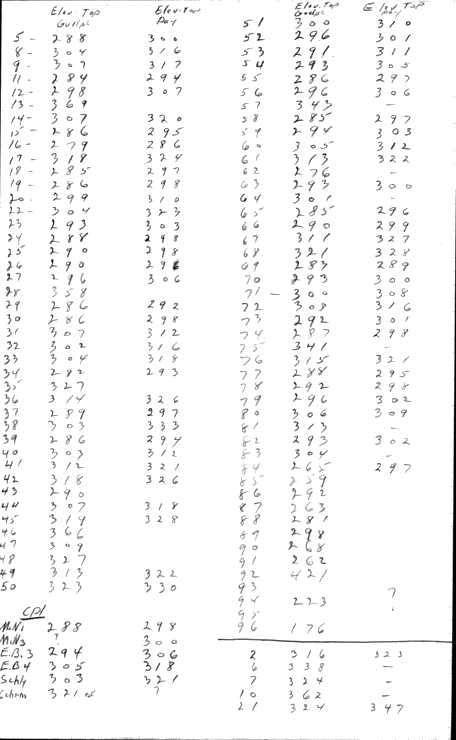 Elev. Top Elev. Top
Guelph Pay
5 - 288 300
8 - 304 316
9 - 307 317
11 - 284 294
12 - 298 307
13 - 369
14 - 307 320
15 - 286 295
16 - 279 286
17 - 318 324
18 - 285 297
19 - 286 298
20 - 299 310
22 - 304 323
23 293 303
24 288 298
25 290 298
26 290 296
27 296 306
28 358
29 286 292
30 286 298
31 307 312
32 302 316
33 304 318
34 282 293
35 327
36 314 326
37 289 297
38 303 333
39 286 294
40 303 312
41 312 321
42 318 326
43 290
44 307 318
45 314 328
46 366
47 309
48 327
49 313 322
50 323 330
CPL
M.N.1 288 298
M.N.3 ? 300
E.B.3 294 306
E.B.4 305 318
Schly 303 321
Schrm 321 ?
Elev. Top
Guelph Pay
51 300 310
52 296 301
53 291 311
54 293 305
55 286 297
56 296 306
57 343 -
58 285 297
59 294 303
60 305 312
61 313 322
62 276 -
63 293 300
64 301 -
65 285 296
66 290 299
67 311 327
68 321 328
69 283 289
70 293 300
71 - 300 308
72 308 316
73 292 301
74 287 298
75 341 -
76 315 321
77 288 295
78 292 298
79 296 302
80 306 309
81 313 -
82 293 302
83 304 -
84 265 297
85 259
86 292
87 263
88 281
89 298
90 268
91 262
92 421
93 ?
94 223
95
96 176
2 316 323
6 338 -
7 324 -
10 362 -
21 324 347